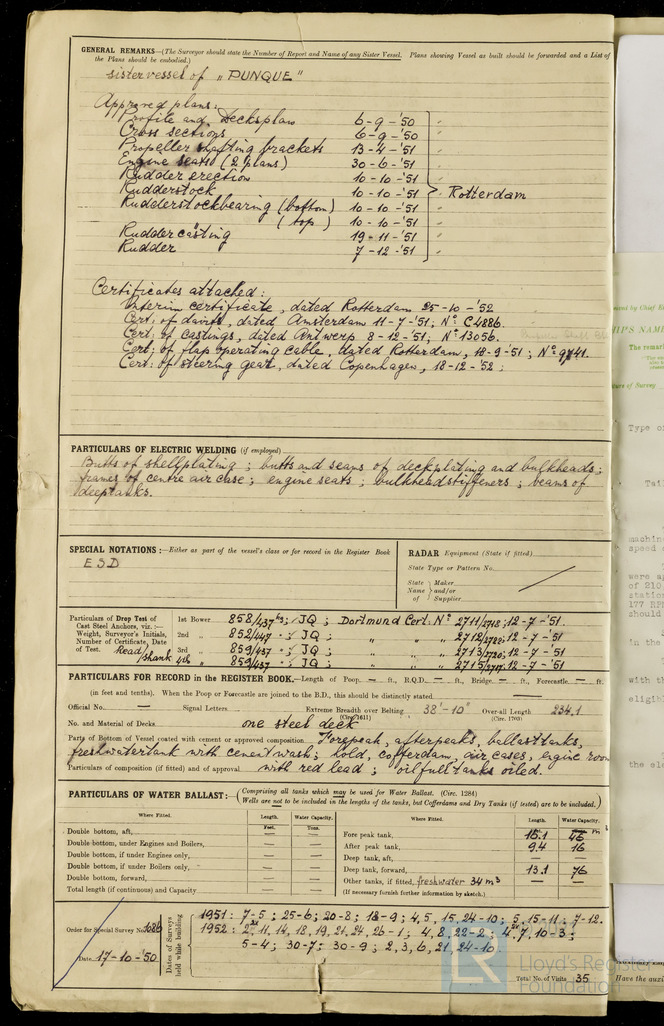 GENERAL REMARKS—(The Surveyor should state the Number of Report and Name of any Sister Vessel. Plans showing Vessel as built should be forwarded and a List of
the Plans should be embodied.)
sistervessel of „PUNGUE"
Approved plans:
Profile and decksplan 6-9-'50
Cross sections 6-9-'50
Propeller shafting brackets 13-4-'51
Engine seats (2 plans) 30-6-'51
Rudder erection 10-10-'51
Rudderstock 10-10-'51 Rotterdam
Rudderstockbearing (bottom) 10-10-'51
(top) 10-10-'51
Ruddercasting 19-11-'51
Rudder 7-12-'51
Certificates attached:
Interim certificate, dated Rotterdam 25-10-'52
Cert: of davits, dated Amsterdam 11-7-'51; No: C4886.
Cert: of castings, dated Antwerp 8-12-'51; No: 13056.
Cert: of flap operating cable, dated Rotterdam, 18-9-'51; No:
Cert: of steering gear, dated Copenhagen, 18-12-'52;
PARTICULARS OF ELECTRIC WELDING (if employed)
Butts of shellplating; butts and seams of deckplating and bulkheads;
frames of centre air case; engine seats; bulkheadstiffeners; beams of
deeptanks.
SPECIAL NOTATIONS:—Either as part of the vessel's class or for record in the Register Book
ESD
RADAR Equipment (State if fitted)
State Type or Pattern No.
State Name of } Maker and/or Supplier
Particulars of Drop Test of Cast Steel Anchors, viz.:—
Weight, Surveyor's Initials, Number of Certificate, Date of Test.
Head/shank
1st Bower 858/437 kgs; JQ; Dortmund Cert. No 2711/2718; 12-7-'51.
2nd „ 852/447 „; JQ; „ „ „ 2712/2720; 12-7-'51
3rd „ 859/437 „; JQ; „ „ „ 2713/2730; 12-7-'51
4th „ 859/437 „; JQ; „ „ „ 2715/2717; 12-7-'51
PARTICULARS FOR RECORD in the REGISTER BOOK.—Length of Poop — ft., R.Q.D. — ft., Bridge — ft., Forecastle — ft.
(in feet and tenths). When the Poop or Forecastle are joined to the B.D., this should be distinctly stated
Official No. — Signal Letters - Extreme Breadth over Belting 38'-10" Over-all Length 234.1
(Circ. 1611) (Circ. 1703)
No. and Material of Decks one steel deck
Parts of Bottom of Vessel coated with cement or approved composition Forepeak, afterpeaks, ballasttanks,
freshwatertank with cementwash; hold, cofferdam, air cases, engine room
Particulars of composition (if fitted) and of approval with red lead; oilfueltanks oiled.
PARTICULARS OF WATER BALLAST:—(Comprising all tanks which may be used for Water Ballast. (Circ. 1284)
Wells are not to be included in the lengths of the tanks, but Cofferdams and Dry Tanks (if tested) are to be included.)
Where Fitted. Length. Water Capacity. Where Fitted. Length. Water Capacity.
Feet. Tons.
Double bottom, aft, — — Fore peak tank, 15.1 45 m3
Double bottom, under Engines and Boilers, — — After peak tank, 9.4 16
Double bottom, if under Engines only, — — Deep tank, aft, — —
Double bottom, if under Boilers only, — — Deep tank, forward, 13.1 76
Double bottom, forward, — — Other tanks, if fitted, freshwater 34 m3 — —
Total length (if continuous) and Capacity — — (If necessary furnish further information by sketch.)
Order for Special Survey No. 1686
Date 17-10-'50
Dates of Surveys held while building
1951: 7-5; 25-6; 20-8; 18-9; 4,5, 15, 24-10; 5, 15-11; 7-12.
1952: 11, 14, 18, 19, 21, 24, 26-1; 4, 8, 22-2; 7, 10-3;
5-4; 30-7; 30-9; 2, 3, 6, 21, 24-10
Total No. of Visits 35
Lloyd's Register
Foundation